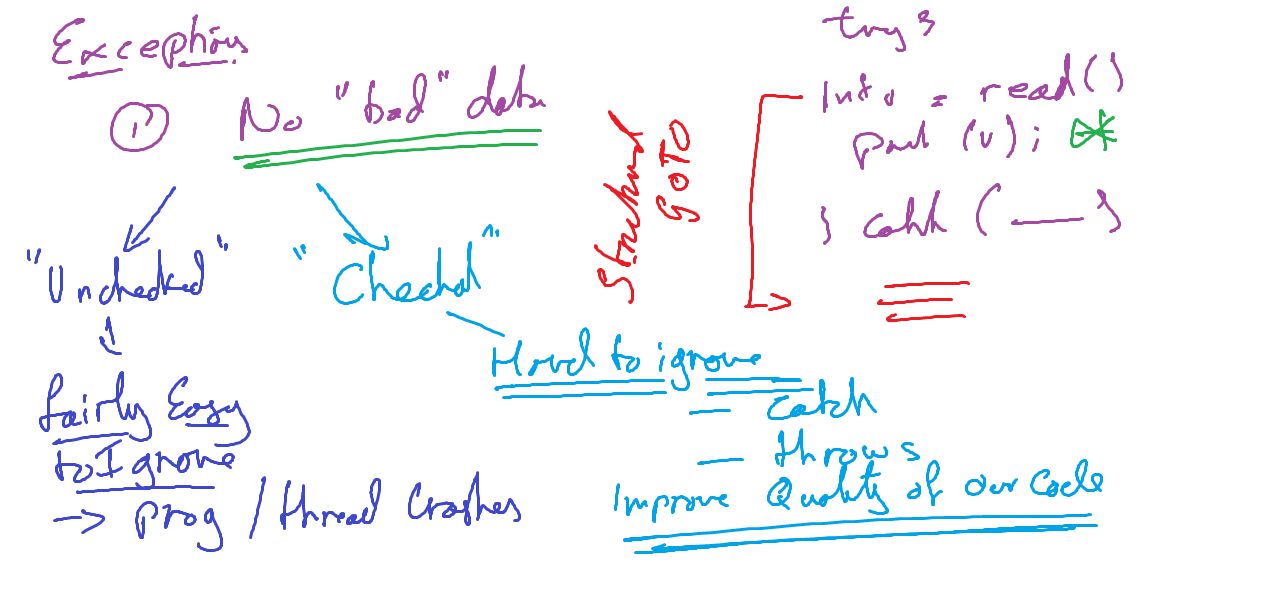 Exceptions
① No "bad" data
"Unchecked"
fairly Easy
to Ignore
-> prog / thread crashes
"Checked"
Hard to ignore
- catch
- throws
Improve Quality of our code
Structured
GOTO
try {
Int v = read()
print (v);
} catch ( — }